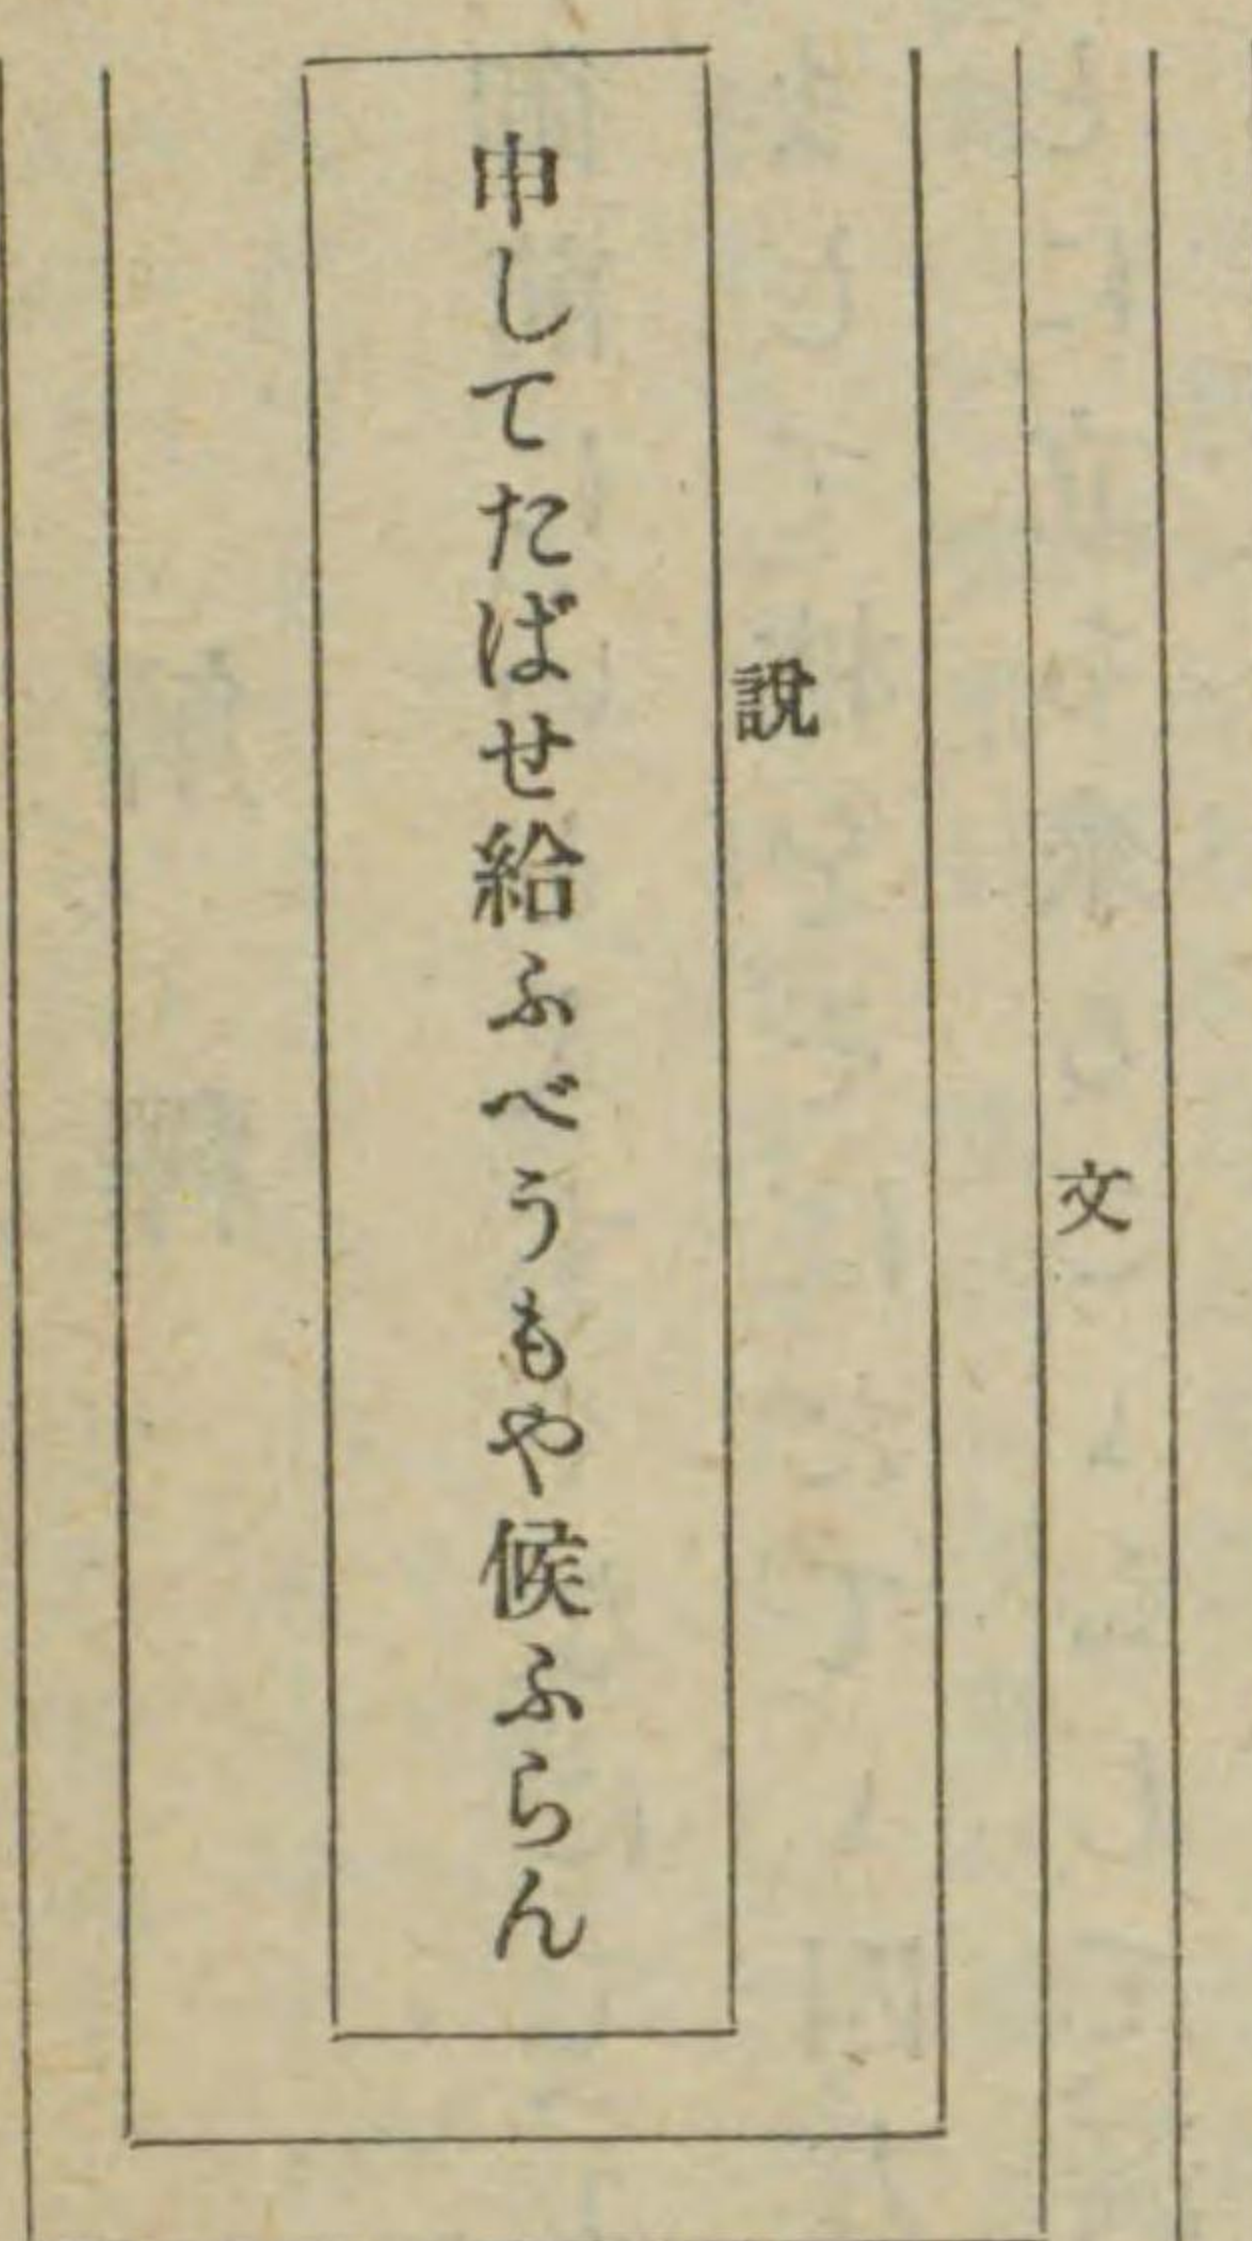 文
說
申してたばせ給ふべうもや候ふらん